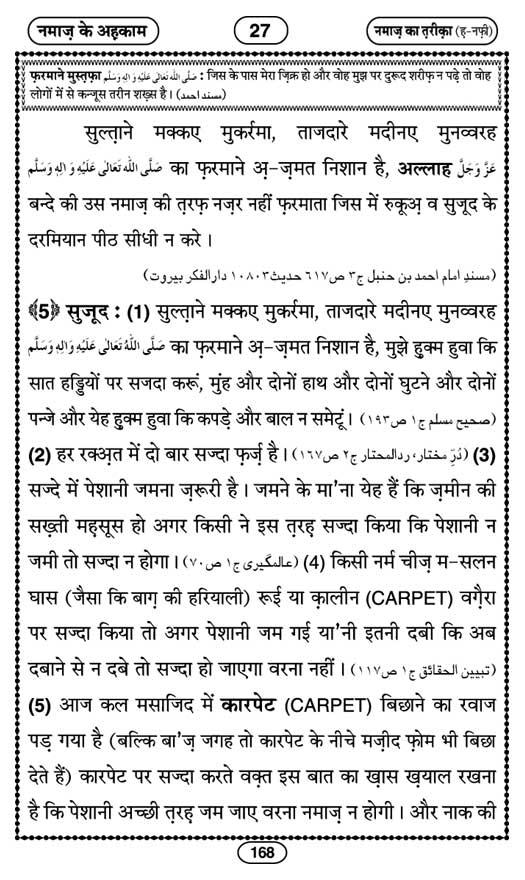 नमाज़ के अहकाम
27
नमाज़ का तरीक़ा (ह-नफ़ी)
फ़रमाने मुस्तफ़ा صَلَّى اللّٰهُ تَعَالٰى عَلَيْهِ وَاٰلِهٖ وَسَلَّم : जिस के पास मेरा ज़िक्र हो और वोह मुझ पर दुरूद शरीफ़ न पढ़े तो वोह
लोगों में से कन्जूस तरीन शख़्स है। (مسند احمد)
सुल्ताने मक्कए मुकर्रमा, ताजदारे मदीनए मुनव्वरह
صَلَّى اللّٰهُ تَعَالٰى عَلَيْهِ وَاٰلِهٖ وَسَلَّم का फ़रमाने अ़-ज़मत निशान है, अल्लाह عَزَّ وَجَلَّ
बन्दे की उस नमाज़ की त़रफ़ नज़र नहीं फ़रमाता जिस में रुकूअ़ व सुजूद के
दरमियान पीठ सीधी न करे ।
(مسندِ امام احمد بن حنبل ج٣ ص٦١٧ حديث ١٠٨٠٣ دارالفكر بيروت)
﴾5﴿ सुजूद : (1) सुल्ताने मक्कए मुकर्रमा, ताजदारे मदीनए मुनव्वरह
صَلَّى اللّٰهُ تَعَالٰى عَلَيْهِ وَاٰلِهٖ وَسَلَّم का फ़रमाने अ़-ज़मत निशान है, मुझे हुक्म हुवा कि
सात हड्डियों पर सजदा करूं, मुंह और दोनों हाथ और दोनों घुटने और दोनों
पन्जे और येह हुक्म हुवा कि कपड़े और बाल न समेटूं। (صحيح مسلم ج١ ص١٩٣)
(2) हर रक्अ़त में दो बार सज्दा फ़र्ज़ है। (دُرِّ مختار، ردالمحتار ج٢ ص١٦٧) (3)
सज्दे में पेशानी जमना ज़रूरी है । जमने के मा'ना येह हैं कि ज़मीन की
सख़्ती मह़सूस हो अगर किसी ने इस त़रह़ सज्दा किया कि पेशानी न
जमी तो सज्दा न होगा। (عالمگیری ج١ ص٧٠) (4) किसी नर्म चीज़ म-सलन
घास (जैसा कि बाग़ की हरियाली) रूई या क़ालीन (CARPET) वग़ैरा
पर सज्दा किया तो अगर पेशानी जम गई या'नी इतनी दबी कि अब
दबाने से न दबे तो सज्दा हो जाएगा वरना नहीं। (تبيين الحقائق ج١ ص١١٧)
(5) आज कल मसाजिद में कारपेट (CARPET) बिछाने का रवाज
पड़ गया है (बल्कि बा'ज़ जगह तो कारपेट के नीचे मज़ीद फ़ोम भी बिछा
देते हैं) कारपेट पर सज्दा करते वक़्त इस बात का ख़ास ख़याल रखना
है कि पेशानी अच्छी त़रह़ जम जाए वरना नमाज़ न होगी । और नाक की
168